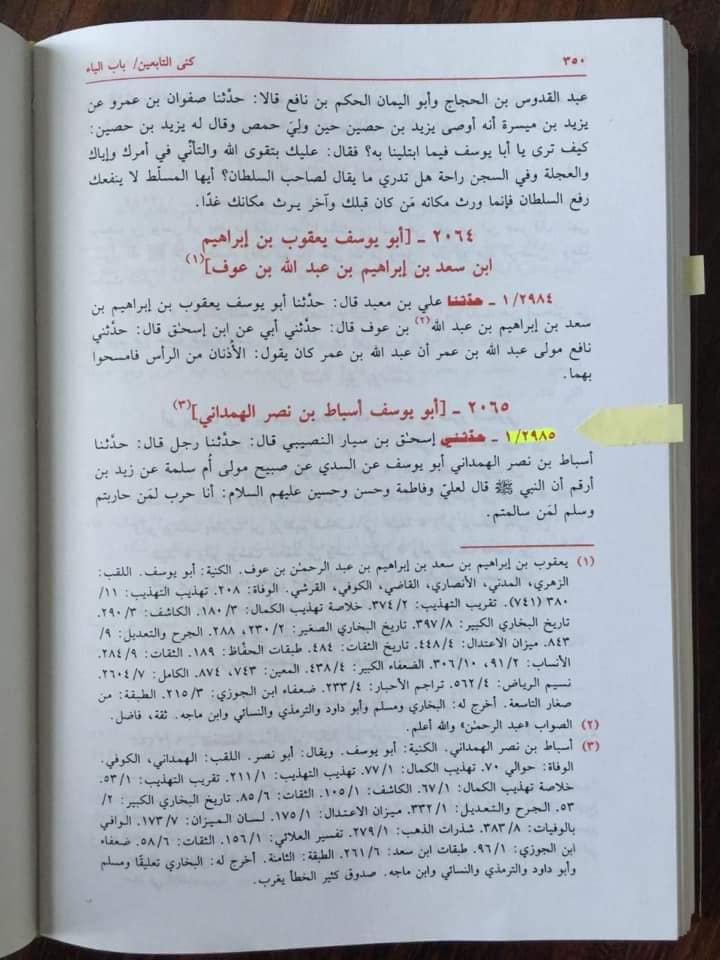 ٣٥٠
كنى التابعين/ باب الياء
عبد القدوس بن الحجاج وأبو اليمان الحكم بن نافع قالا: حدّثنا صفوان بن عمرو عن
يزيد بن ميسرة أنه أوصى يزيد بن حصين حين وليَ حمص وقال له يزيد بن حصين:
كيف ترى يا أبا يوسف فيما ابتلينا به؟ فقال: عليك بتقوى الله والتأنّي في أمرك وإياك
والعجلة وفي السجن راحة هل تدري ما يقال لصاحب السلطان؟ أيها المسلّط لا ينفعك
رفع السلطان فإنما ورث مكانه مَن كان قبلك وآخر يرث مكانك غدًا.
٢٠٦٤ ـ [أبو يوسف يعقوب بن إبراهيم
ابن سعد بن إبراهيم بن عبد الله بن عوف](١)
١/٢٩٨٤ ـ حدّثنا علي بن معبد قال: حدّثنا أبو يوسف يعقوب بن إبراهيم بن
سعد بن إبراهيم بن عبد الله(٢) بن عوف قال: حدّثني أبي عن ابن إسحٰق قال: حدّثني
نافع مولى عبد الله بن عمر أن عبد الله بن عمر كان يقول: الأُذنان من الرأس فامسحوا
بهما.
٢٠٦٥ ـ [أبو يوسف أسباط بن نصر الهمداني](٣)
١/٢٩٨٥ ـ حدّثني إسحٰق بن سيار النصيبي قال: حدّثنا رجل قال: حدّثنا
أسباط بن نصر الهمداني أبو يوسف عن السدي عن صبيح مولى أُم سلمة عن زيد بن
أرقم أن النبي ﷺ قال لعليّ وفاطمة وحسن وحسين عليهم السلام: أنا حرب لمَن حاربتم
وسلم لمَن سالمتم.
(١) يعقوب بن إبراهيم بن سعد بن إبراهيم بن عبد الرحمٰن بن عوف. الكنية: أبو يوسف. اللقب:
الزهري، المدني، الأنصاري، القاضي، الكوفي، القرشي. الوفاة: ٢٠٨. تهذيب التهذيب: ١١/
٣٨٠ (٧٤١). تقريب التهذيب: ٣٧٤/٢. خلاصة تهذيب الكمال: ١٨٠/٣. الكاشف: ٢٩٠/٣.
تاريخ البخاري الكبير: ٣٩٧/٨. تاريخ البخاري الصغير: ٢٣٠/٢، ٢٨٨. الجرح والتعديل: ٩/
٨٤٣. ميزان الاعتدال: ٤٤٨/٤. تاريخ الثقات: ٤٨٤. طبقات الحفّاظ: ١٨٩. الثقات: ٢٨٤/٩.
الأنساب: ٩١/٢، ٣٠٦/١٠. الضعفاء الكبير: ٤٣٨/٤. المعين: ٧٤٣، ٨٧٤. الكامل: ٢٦٠٤/٧.
نسيم الرياض: ٥٦٢/٤. تراجم الأحبار: ٢٣٣/٤. ضعفاء ابن الجوزي: ٢١٥/٣. الطبقة: من
صغار التاسعة. أخرج له: البخاري ومسلم وأبو داود والترمذي والنسائي وابن ماجه. ثقة، فاضل.
(٢) الصواب «عبد الرحمٰن» والله أعلم.
(٣) أسباط بن نصر الهمداني. الكنية: أبو يوسف. ويقال: أبو نصر. اللقب: الهمداني، الكوفي.
الوفاة: حوالي ٧٠. تهذيب الكمال: ٧٧/١. تهذيب التهذيب: ٢١١/١. تقريب التهذيب: ٥٣/١.
خلاصة تهذيب الكمال: ٦٧/١. الكاشف: ١٠٥/١. الثقات: ٨٥/٦. تاريخ البخاري الكبير: ٢/
٥٣. الجرح والتعديل: ٣٣٢/١. ميزان الاعتدال: ١٧٥/١. لسان الميزان: ١٧٣/٧. الوافي
بالوفيات: ٣٨٣/٨. شذرات الذهب: ٢٧٩/١. تفسير العلائي: ١٥٦/١. الثقات: ٥٨/٦. ضعفاء
ابن الجوزي: ٩٦/١. طبقات ابن سعد: ٢٦١/٦. الطبقة: الثامنة. أخرج له: البخاري تعليقًا ومسلم
وأبو داود والترمذي والنسائي وابن ماجه. صدوق كثير الخطأ يغرب.